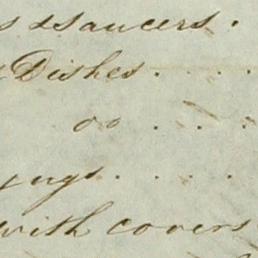 s & Saucers .
Dishes . . . .
do . . .
jugs . . . .
with covers